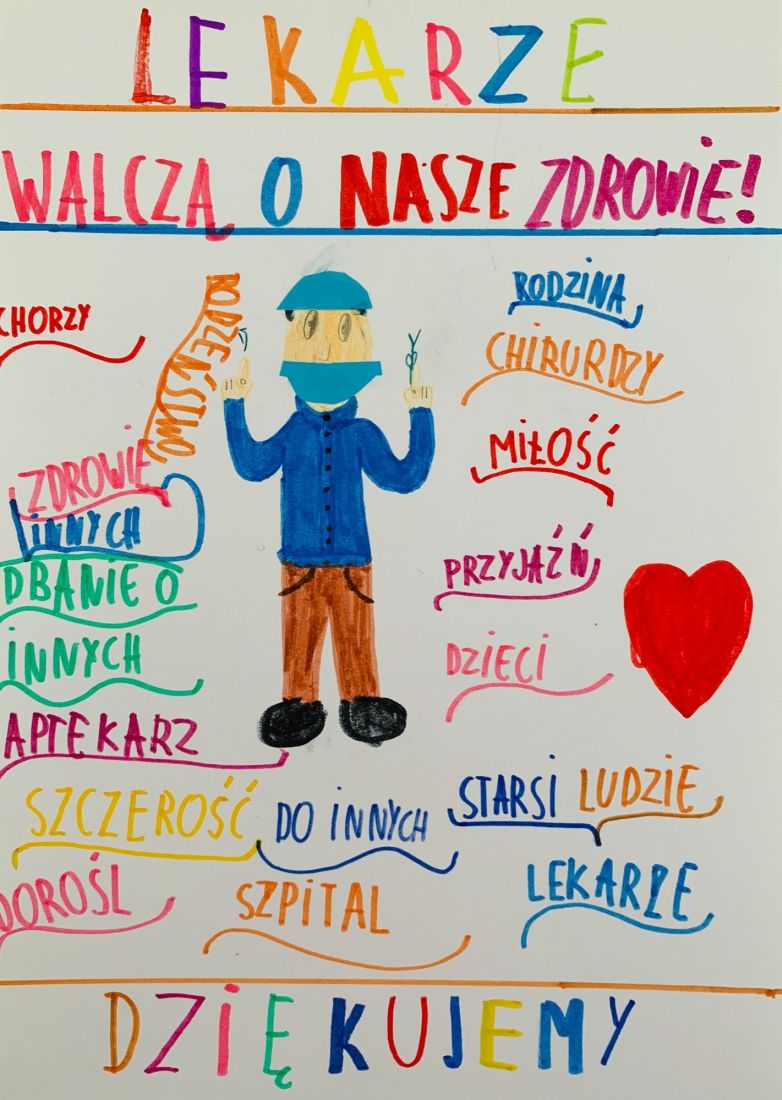 LEKARZE
WALCZĄ O NASZE ZDROWIE!
CHORZY
RODZEŃSTWO
RODZINA
CHIRURDZY
ZDROWIE
INNYCH
MIŁOŚĆ
DBANIE O
INNYCH
PRZYJAŹŃ
DZIECI
APTEKARZ
SZCZEROŚĆ DO INNYCH
STARSI LUDZIE
DOROŚL
SZPITAL
LEKARZE
DZIĘKUJEMY